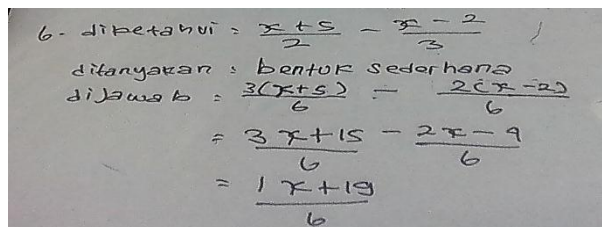 6. diketahui : x + 5 / 2 - x - 2 / 3
ditanyakan : bentuk sederhana
dijawab : 3(x+5) / 6 - 2(x-2) / 6
= 3x+15 / 6 - 2x-4 / 6
= 1x+19 / 6